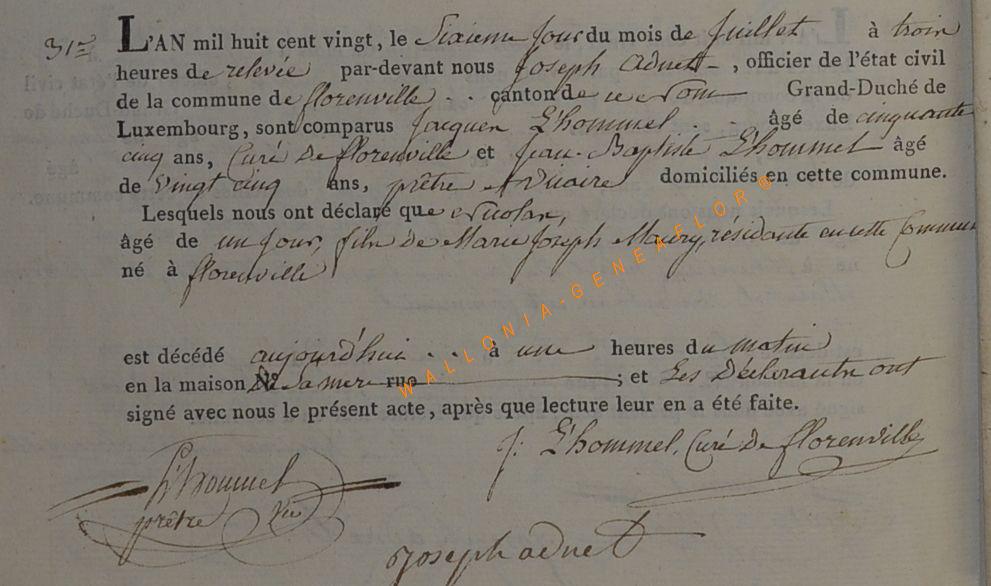 31e
L'AN mil huit cent vingt, le Sixieme Jour du mois de Juillet à trois
heures de relevée par-devant nous Joseph adnet, officier de l'état civil
de la commune de florenville . . canton de ce nom Grand-Duché de
Luxembourg, sont comparus Jacques L'hommel . . âgé de cinquante
cinq ans, Curé de florenville et Jean-Baptiste L'hommel âgé
de Vingt cinq ans, prêtre et vicaire domiciliés en cette commune.
Lesquels nous ont déclaré que Nicolas,
âgé de un Jour, fils de Marie Joseph Maury, résidante en cette Commune
né à florenville
est décédé aujourd'hui . . à une heures du matin
en la maison No de Sa mere rue ; et Les Déclarants ont
signé avec nous le présent acte, après que lecture leur en a été faite.
J: L'hommel, Curé de florenville
L'hommel
prêtre Vic
Joseph adnet
WALLONIA-GENEAFLOR ®